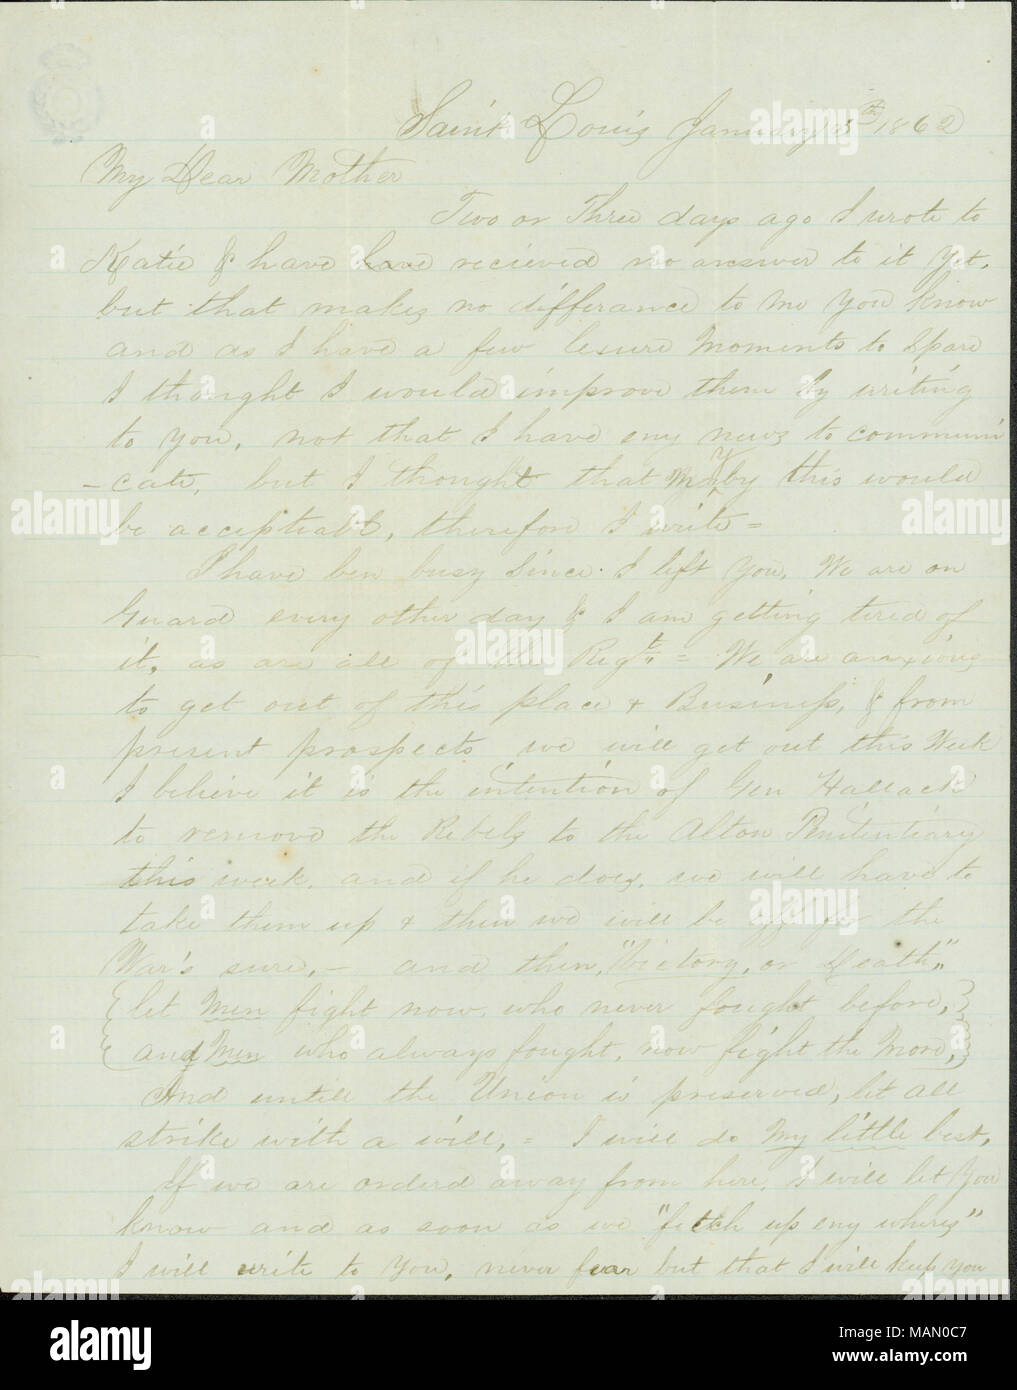 Saint Louis January 5th 1862
My Dear Mother
Two or Three days ago I wrote to
Katie & have have recieved no answer to it yet,
but that makes no differance to me you know
and as I have a few lesure moments to spare
I thought I would improve them by writing
to you, not that I have eny news to communi
-cate, but I thought that Mayby this would
be acceptiabl, therefore I write =
I have ben busy Since I left you. We are on
Guard every other day & I am getting tired of
it, as are all of the Regt. = We are anxious
to get out of this place & Business, & from
present prospects we will get out this Week
I believe it is the intention of Gen Hallack
to remove the Rebels to the Alton Penitentiary
this week. and if he does, we will have to
take them up & then we will be off for the
War's sure, - and then, "Victory, or Death",
{let Men fight now, who never fought before,}
{and Men who always fought, now fight the More,}
And untill the Union is preserved, let all
strike with a will, = I will do My little best,
If we are orderd away from here, I will let You
know and as soon as we "fetch up eny wheres"
I will write to You, never fear but that I will keep you
alamy
alamy stock photo
Image ID: MAN0C7
www.alamy.com